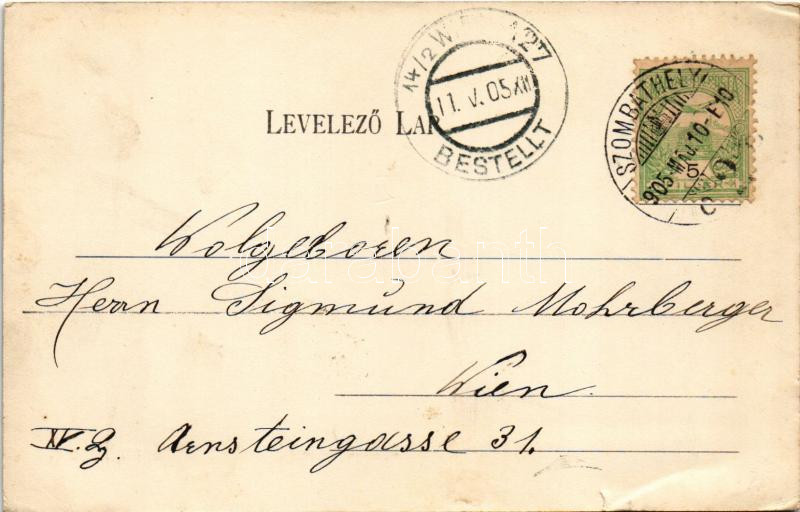 14/2 WIEN 127
11.V.05 XII
BESTELLT
LEVELEZŐ LAP
SZOMBATHELY
905 MÁJ 10
5
Wolgeboren
Herrn Sigmund Mohrberger
Wien.
XV. Bz. Arnsteingasse 31.
Darabanth